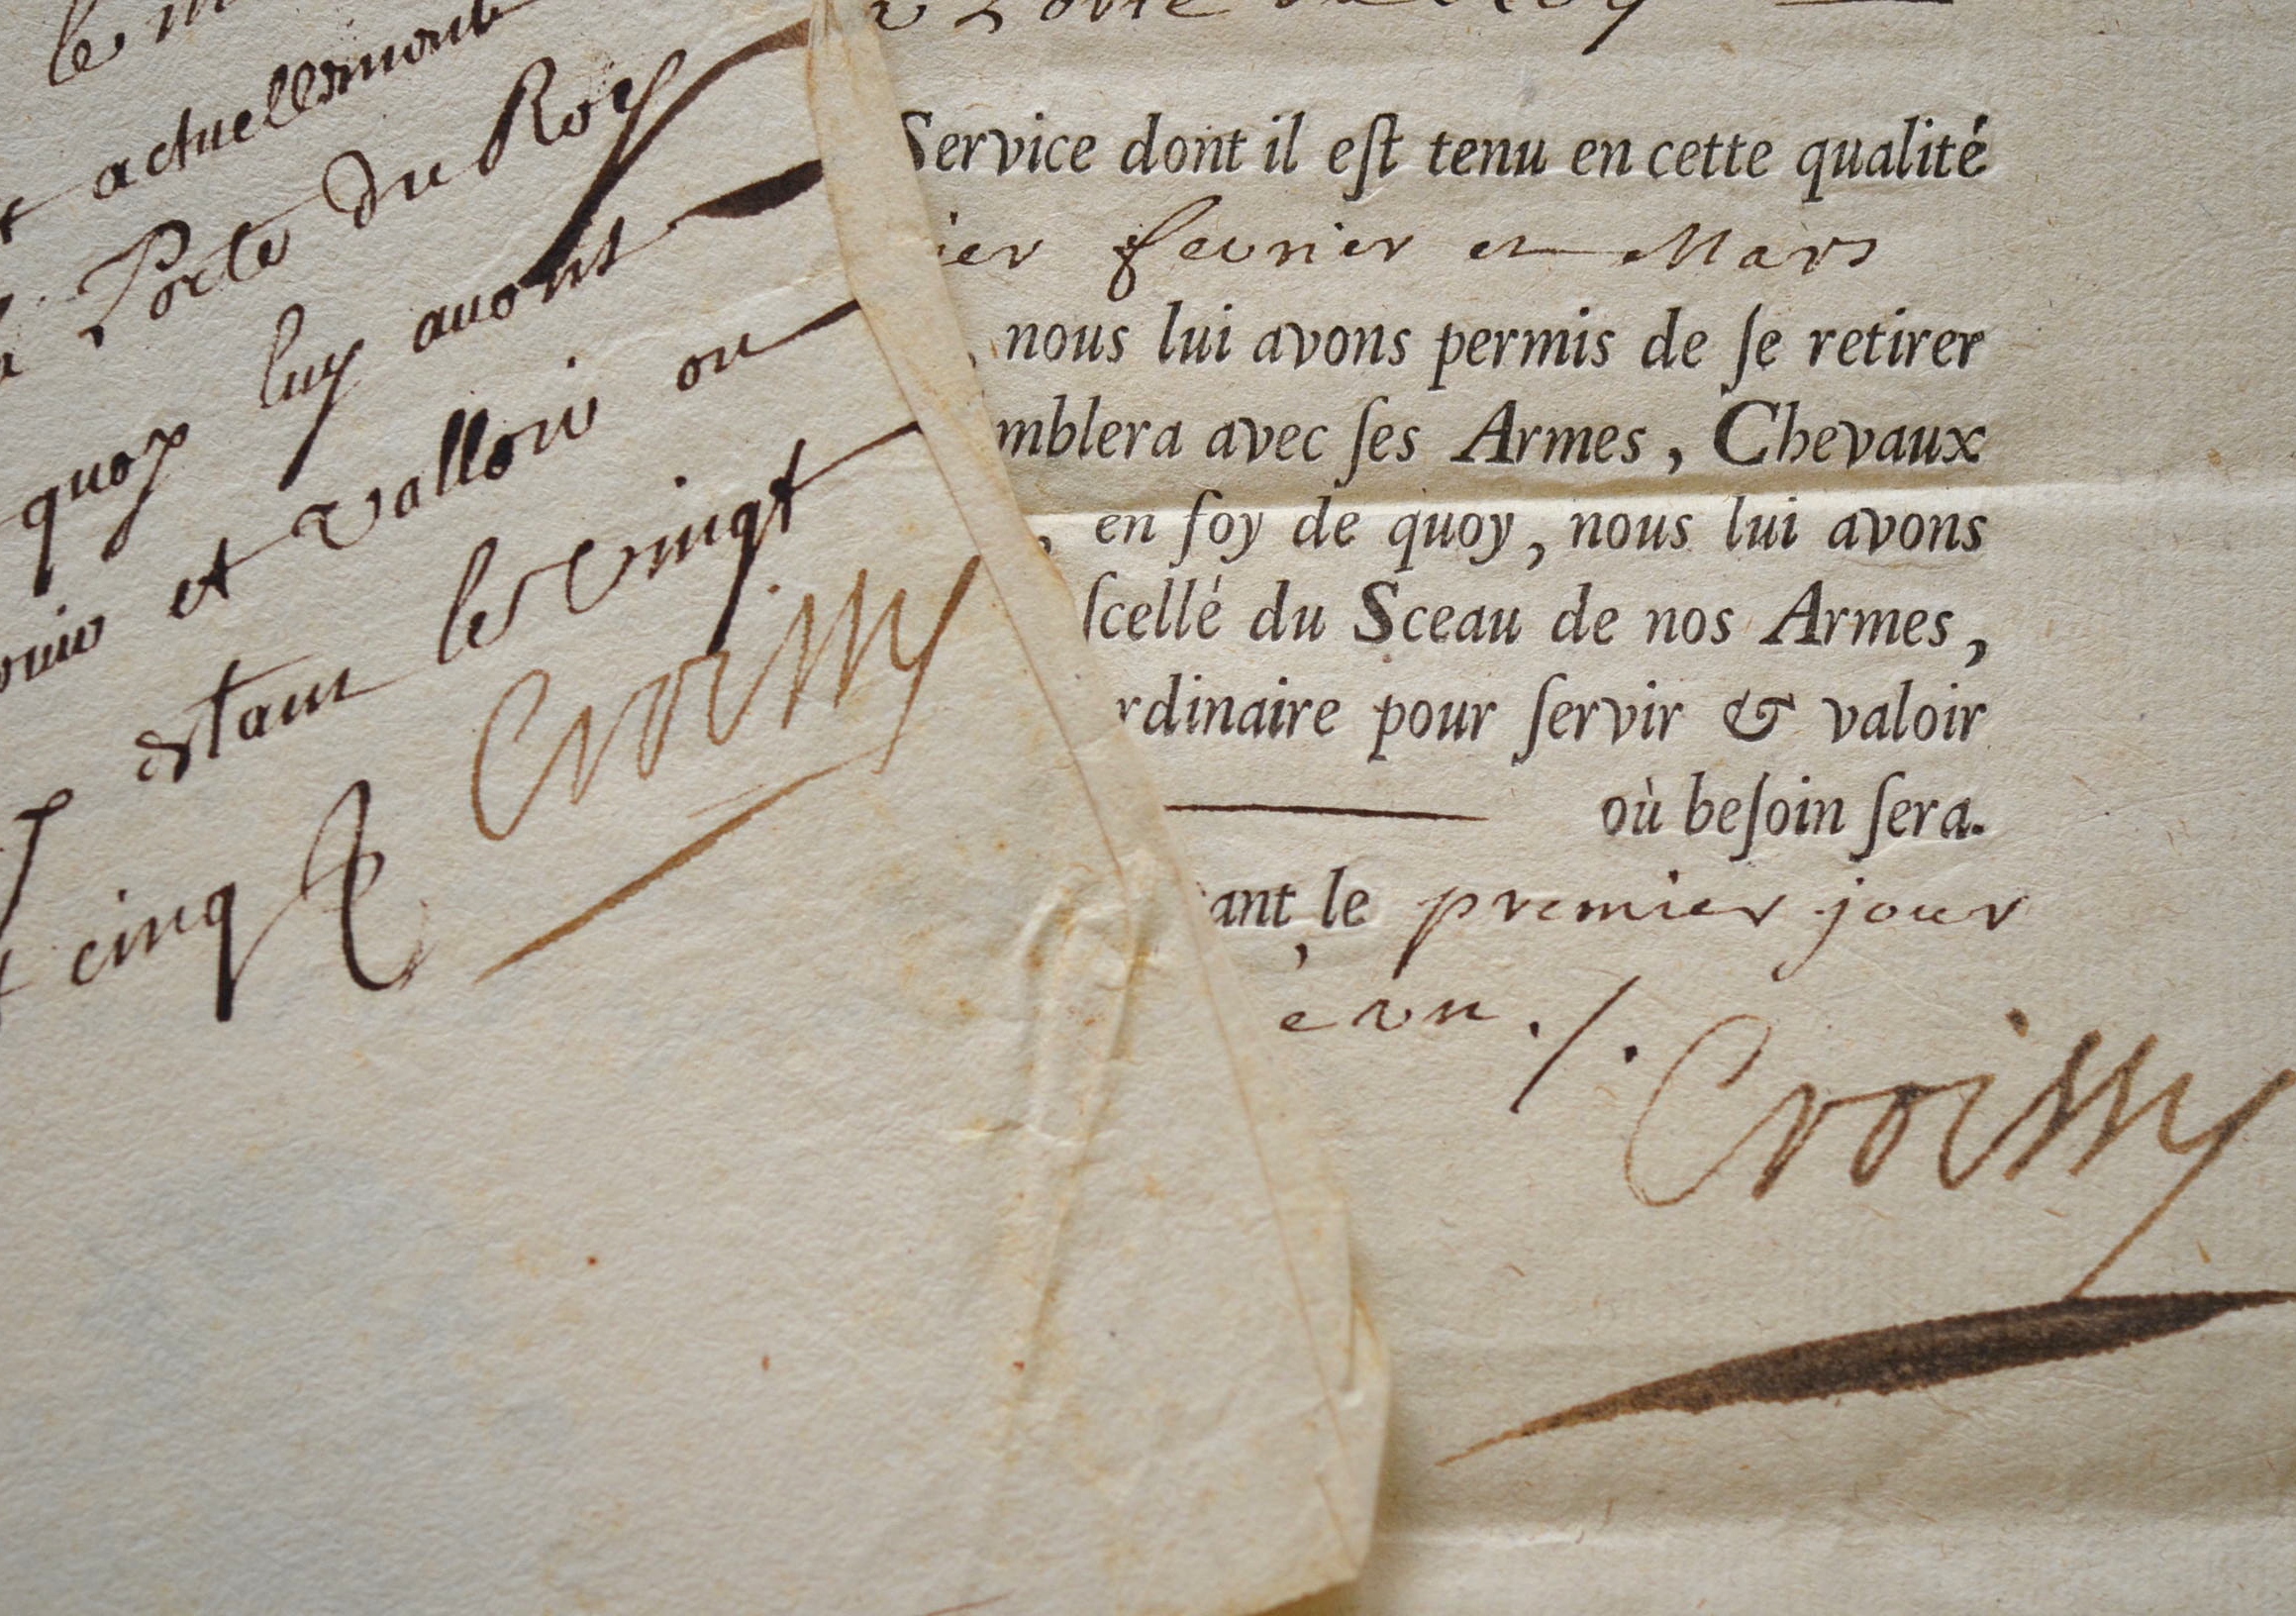 le
actuellement
Porte du Roy
quoy luy auons
et valloir ou
estant le vingt
cinq
Croissy
Porte du Roy
Service dont il eſt tenu en cette qualité
ier feurier et Mars
, nous lui avons permis de ſe retirer
mblera avec ſes Armes, Chevaux
, en foy de quoy, nous lui avons
ſcellé du Sceau de nos Armes,
rdinaire pour ſervir & valoir
où beſoin ſera.
ant, le premier jour
e vn ./.
Croissy